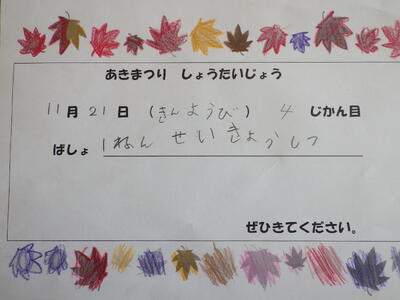 あきまつり しょうたいじょう
11月21日(きんようび) 4 じかん目
ばしょ 1ねんせいきょうしつ
ぜひきてください。